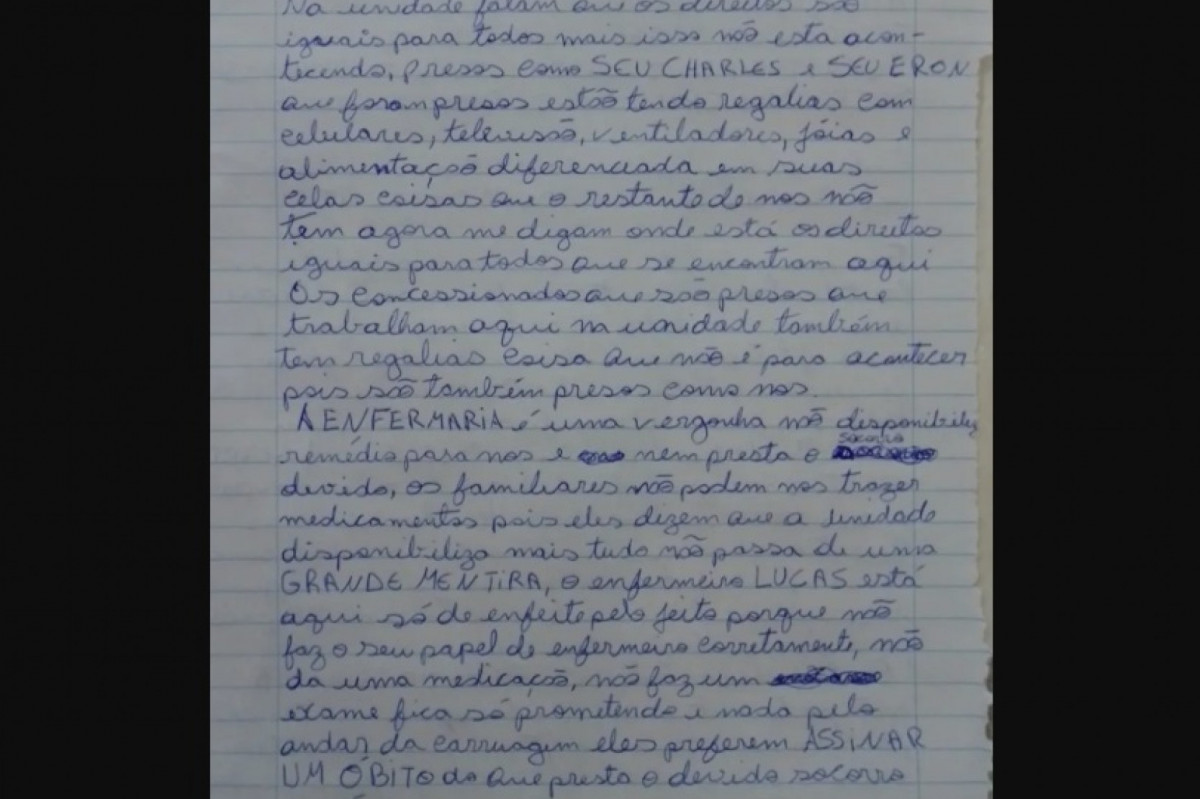 Na unidade falam que os direitos são
iguais para todos mais isso não esta acon-
tecendo, presos como SEU CHARLES e SEU ERON
que foram presos estão tendo regalias com
celulares, televisão, ventiladores, jóias e
alimentação diferenciada em suas
celas coisas que o restante de nos não
tem agora me digam onde está os direitos
iguais para todos que se encontram aqui
Os concessionados que são presos que
trabalham aqui na unidade também
tem regalias coisa que não é para acontecer
pois são também presos como nos.
A ENFERMARIA é uma vergonha não disponibiliz
remédio para nos e nem presta o socorro
devido, os familiares não podem nos trazer
medicamentos pois eles dizem que a unidade
disponibiliza mais tudo não passa de uma
GRANDE MENTIRA, o enfermeiro LUCAS está
aqui só de enfeite pelo jeito porque não
faz o seu papel de enfermeiro corretamente, não
da uma medicação, não faz um
exame fica só prometendo e nada pelo
andar da carruagem eles preferem ASSINAR
UM ÓBITO do que presta o devido socorro